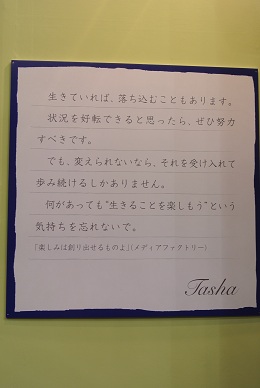 生きていれば、落ち込むこともあります。
状況を好転できると思ったら、ぜひ努力
すべきです。
でも、変えられないなら、それを受け入れて
歩み続けるしかありません。
何があっても“生きることを楽しもう”という
気持ちを忘れないで。
「楽しみは創り出せるものよ」（メディアファクトリー）
Tasha